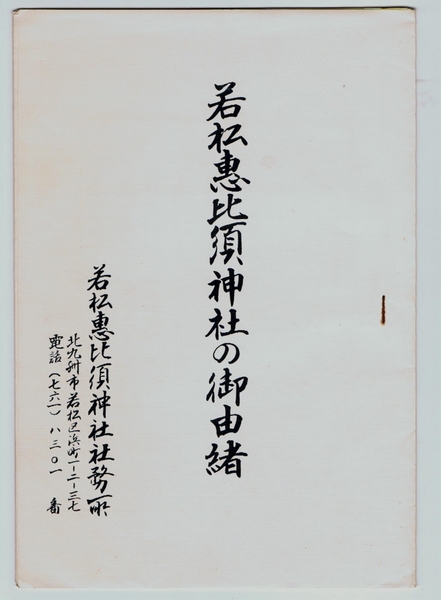 若松恵比須神社の御由緒
若松恵比須神社社務所
北九州市若松区浜町一ー二ー三七
電話（七六一）八三〇一 番